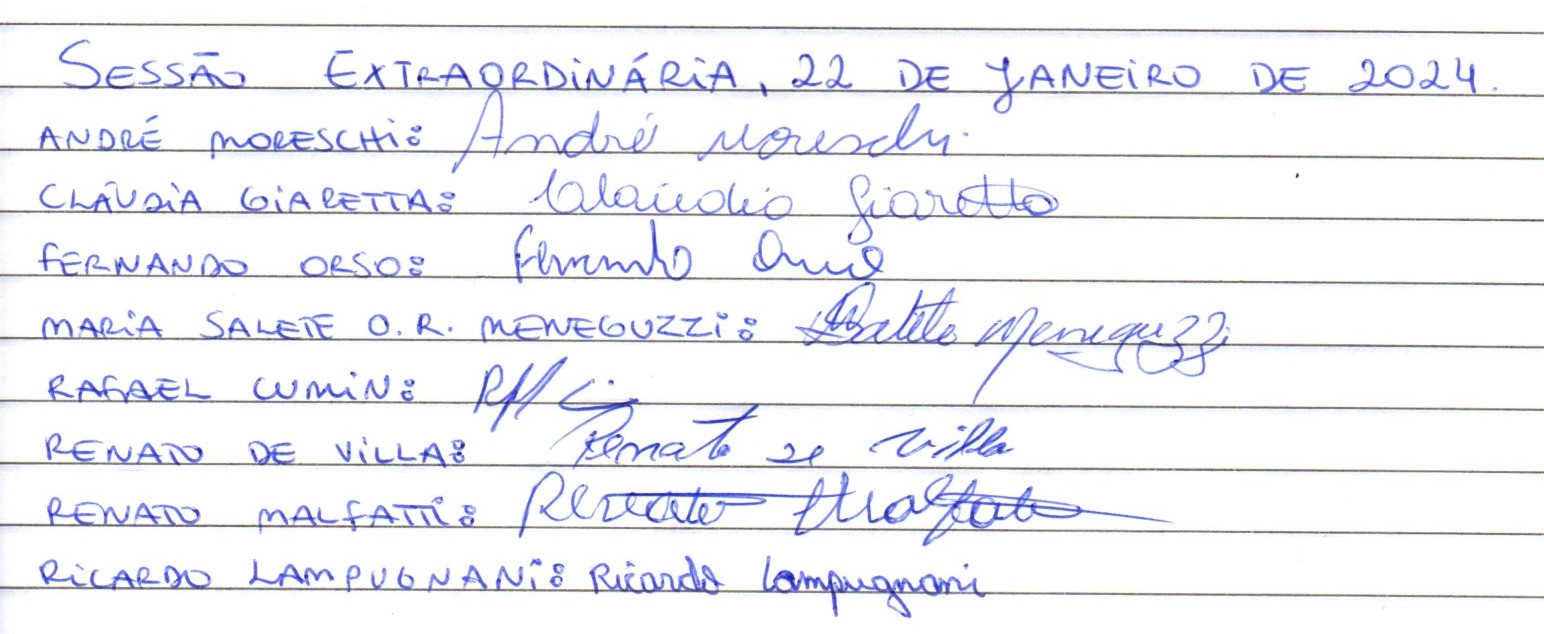 SESSÃO EXTRAORDINÁRIA, 22 DE JANEIRO DE 2024.
ANDRÉ MORESCHI: André Moreschi
CLÁUDIA GIARETTA: Claudia Giaretta
FERNANDO ORSO: Fernando Orso
MARIA SALETE O. R. MENEGUZZI: Salete Meneguzzi
RAFAEL CUMIN:
RENATO DE VILLA: Renato de Villa
RENATO MALFATTI: Renato Malfatti
RICARDO LAMPUGNANI: Ricardo Lampugnani